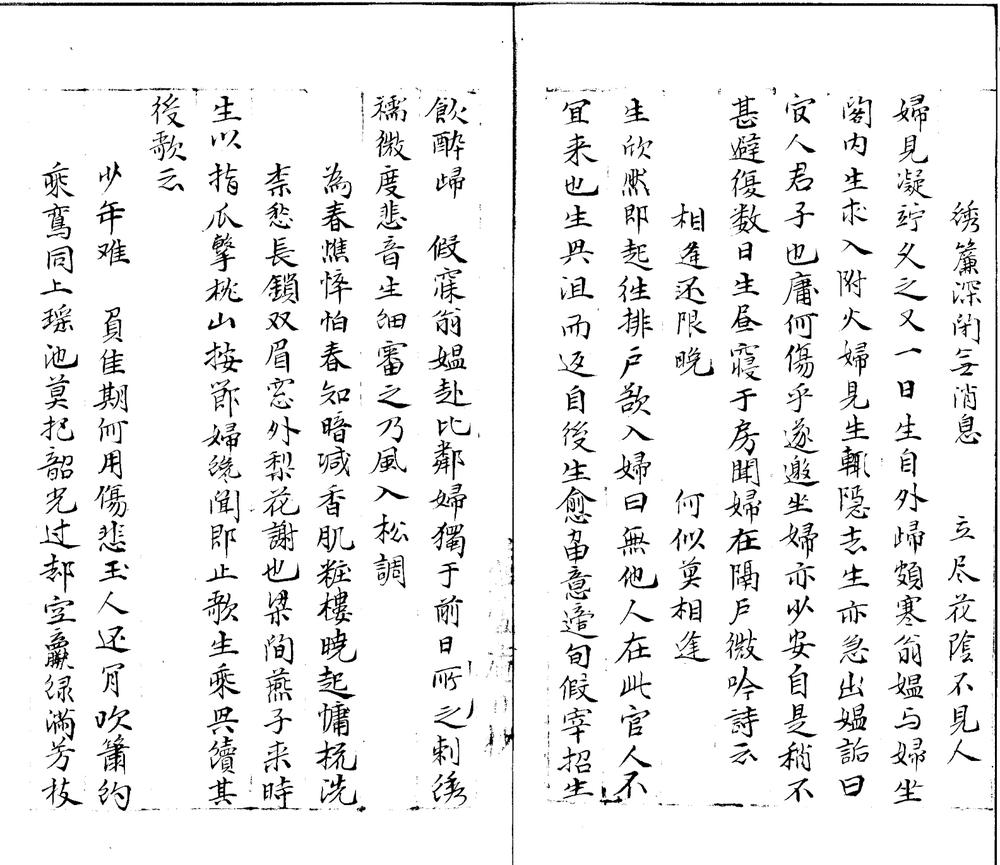 绣簾深闭无消息　立尽花陰不見人
婦見凝竚久之又一日生自外歸頗寒翁媪与婦坐
閣内生求入附火婦見生輙隐志生亦急出媪詬曰
官人君子也庸何傷乎遂邀坐婦亦少安自是稍不
甚避復数日生昼寝于房聞婦在隔戸微吟詩云
相逢还限晚　何似莫相逢
生欣然即起往排戸欲入婦曰無他人在此官人不
宜来也生具沮而返自後生愈畱意適旬假宰招生
飲醉歸　假寐翁媪赴比鄰婦獨于前日所之刺绣
襦微度悲音生細審之乃風入松調
為春憔悴怕春知暗減香肌粧樓曉起慵梳洗
柰愁長鎖双眉窓外梨花謝也梁間燕子来時
生以指爪擊桃山按節婦纔聞即止歌生乘興續其
後歌云
少年难　負佳期何用傷悲玉人还肯吹簫约
乘鸾同上瑶池莫把韶光过却空贏绿滿芳枝